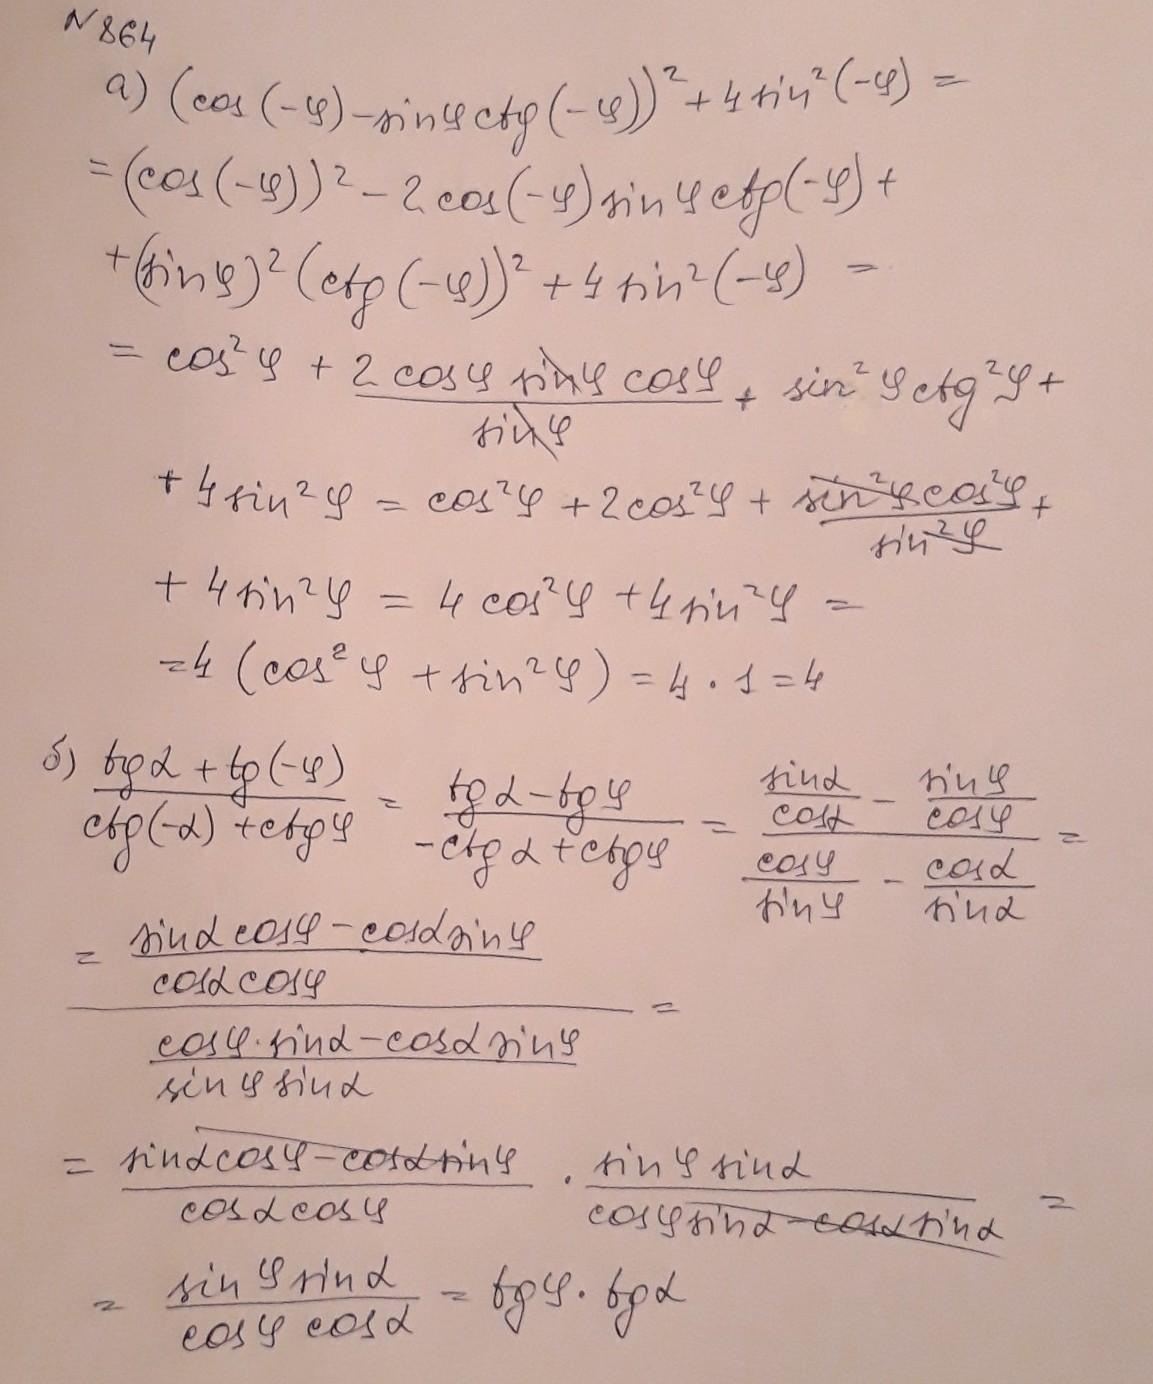 N 864
а) (cos(-φ)-sinφctg(-φ))²+4sin²(-φ) =
=(cos(-φ))²-2cos(-φ)sinφctg(-φ)+
+(sinφ)²(ctg(-φ))²+4sin²(-φ) =
= cos²φ + 2cosφ sinφ cosφ/sinφ + sin²φctg²φ+
+4sin²φ = cos²φ+2cos²φ + sin²φcos²φ/sin²φ +
+ 4sin²φ = 4cos²φ+4sin²φ =
=4(cos²φ+sin²φ)=4·1=4
б) (tgα+tg(-φ))/(ctg(-α)+ctgφ) = (tgα-tgφ)/(-ctgα+ctgφ) = (sinα/cosα - sinφ/cosφ)/(cosφ/sinφ - cosα/sinα) =
= ((sinαcosφ-cosαsinφ)/(cosαcosφ))/((cosφ·sinα-cosαsinφ)/(sinφsinα)) =
= (sinαcosφ-cosαsinφ)/(cosαcosφ) · (sinφsinα)/(cosφsinα-cosαsinα) =
= (sinφsinα)/(cosφcosα) = tgφ·tgα